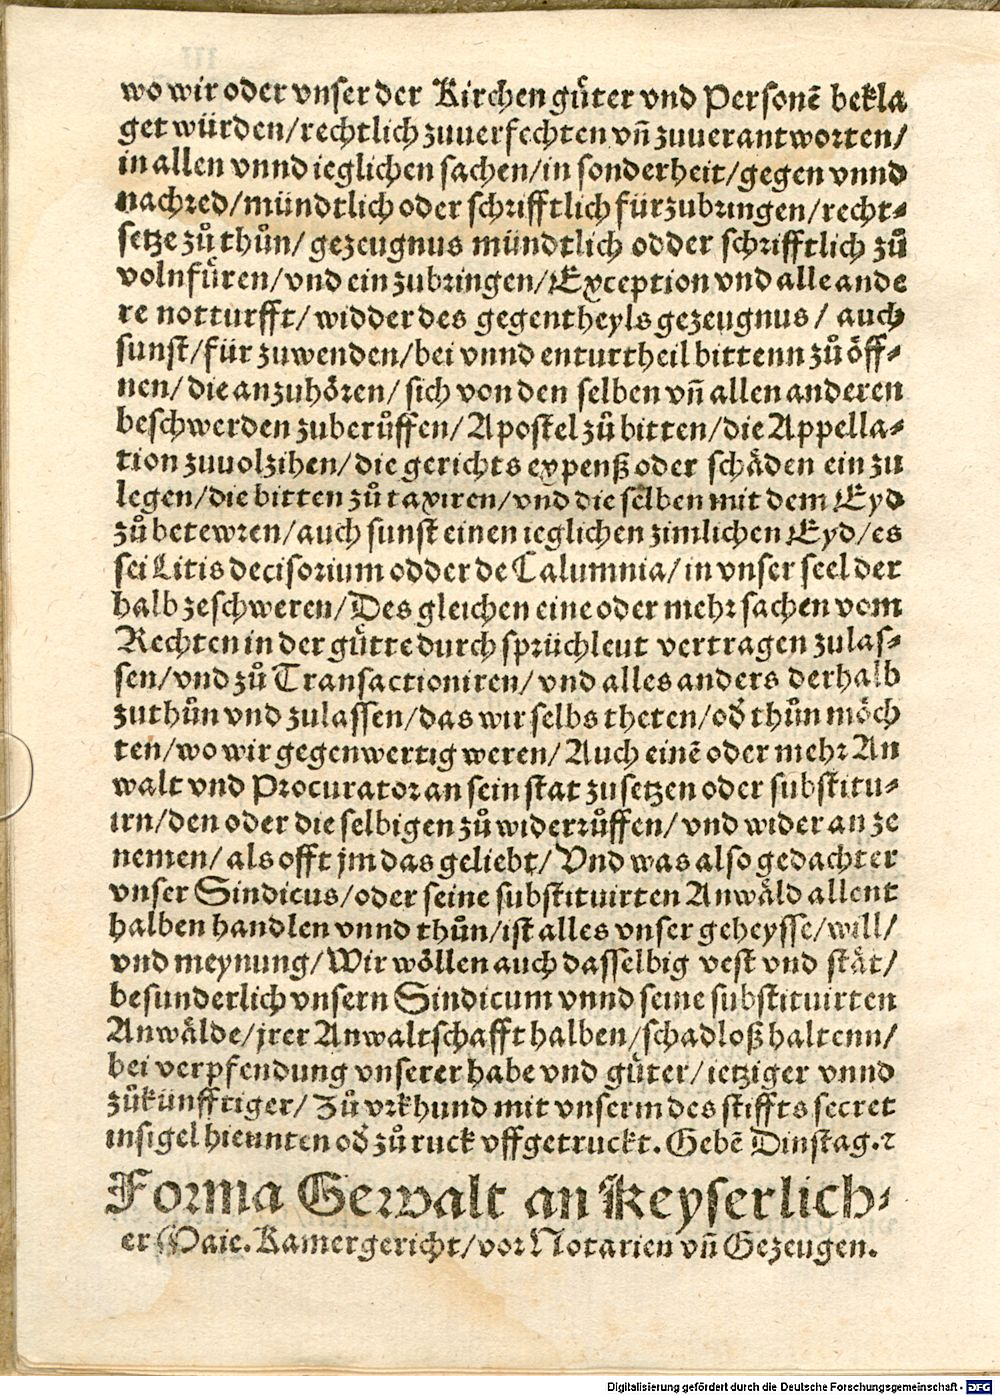 wo wir oder vnser der Kirchen guͤter vnd Personē bekla
get würden/rechtlich zuuerfechten vñ zuuerantworten/
in allen vnnd ieglichen sachen/in sonderheit/gegen vnnd
nachred/mündtlich oder schrifftlich fürzubringen/recht⸗
setze zů thůn/ gezeugnus mündtlich odder schrifftlich zů
volnfuͤren/vnd einzubringen/Exception vnd alle ande
re notturfft/widder des gegentheyls gezeugnus/ auch
sunst/für zuwenden/bei vnnd enturtheil bittenn zů oͤff⸗
nen/ die anzuhoͤren/ sich von den selben vñ allen anderen
beschwerden zuberůffen/Apostel zů bitten/die Appella⸗
tion zuuolzihen/die gerichts expenß oder schaͤden ein zu
legen/die bitten zů taxiren/vnd die selben mit dem Eyd
zů betewren/auch sunst einen ieglichen zimlichen Eyd/es
sei Litis decisorium odder de Calumnia/in vnser seel der
halb zeschweren/Des gleichen eine oder mehr sachen vom
Rechten in der guͤtte durch sprüchleut vertragen zulas⸗
sen/vnd zů Transactioniren/ vnd alles anders derhalb
zuthůn vnd zulassen/das wir selbs theten/oď thůn moͤch
ten/wo wir gegenwertig weren/Auch einē oder mehr An
walt vnd Procurator an sein stat zusetzen oder substitu⸗
irn/den oder die selbigen zů widerrůffen/vnd wider an ze
nemen/als offt jm das geliebt/Vnd was also gedachter
vnser Sindicus/oder seine substituirten Anwaͤld allent
halben handlen vnnd thůn/ist alles vnser geheysse/will/
vnd meynung/Wir woͤllen auch dasselbig vest vnd staͤt/
besunderlich vnsern Sindicum vnnd seine substituirten
Anwaͤlde/jrer Anwaltschafft halben/schadloß haltenn/
bei verpfendung vnserer habe vnd guͤter/ietziger vnnd
zůkünfftiger/Zů vrkhund mit vnserm des stiffts secret
insigel hieunten oď zů ruck vffgetruckt. Gebē Dinstag.⁊
Forma Gewalt an Keyserlich⸗
er Maie. Kamergericht/vor Notarien vñ Gezeugen.
Digitalisierung gefördert durch die Deutsche Forschungsgemeinschaft - DFG